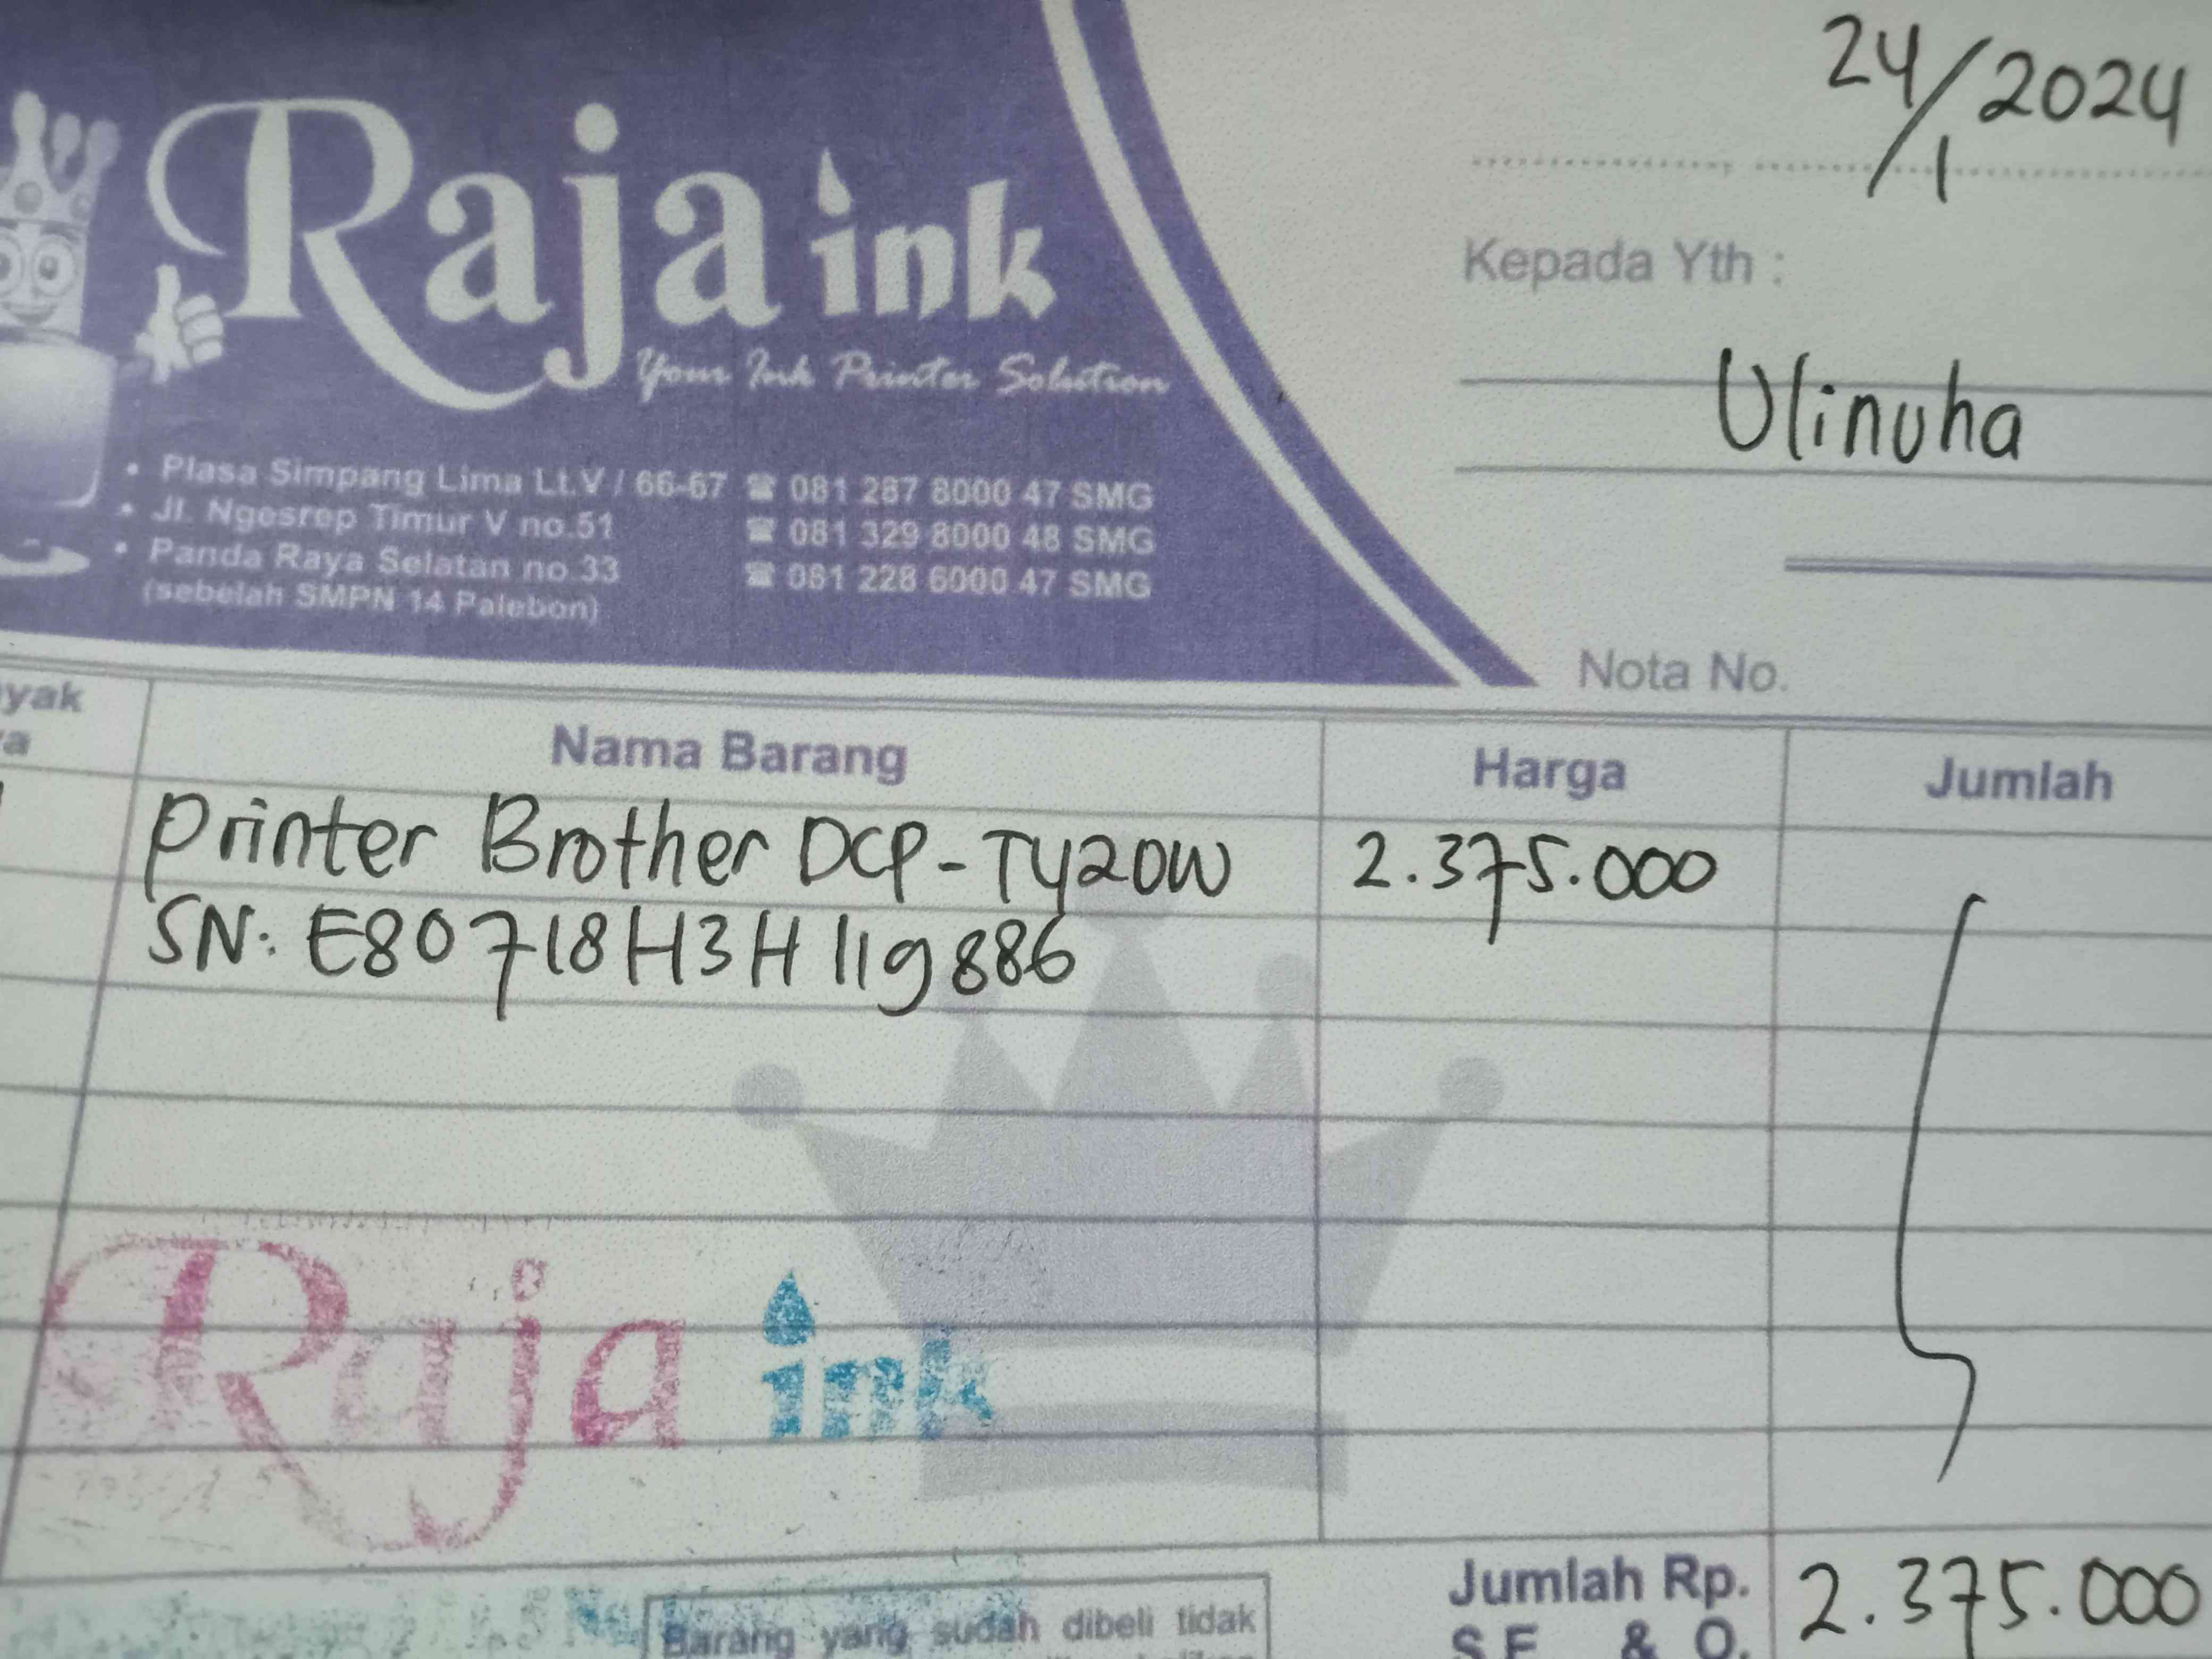 24/1 2024
Raja ink
Your Ink Printer Solution
Kepada Yth :
Ulinuha
• Plasa Simpang Lima Lt.V / 66-67 ☎ 081 287 8000 47 SMG
• Jl. Ngesrep Timur V no.51 ☎ 081 329 8000 48 SMG
• Panda Raya Selatan no.33 ☎ 081 228 6000 47 SMG
(sebelah SMPN 14 Palebon)
Nota No.
Nama Barang Harga Jumlah
Printer Brother DCP-T420W 2.375.000
SN: E80718H3H119886
Raja ink
Jumlah Rp. 2.375.000
Barang yang sudah dibeli tidak
S.E. & O.